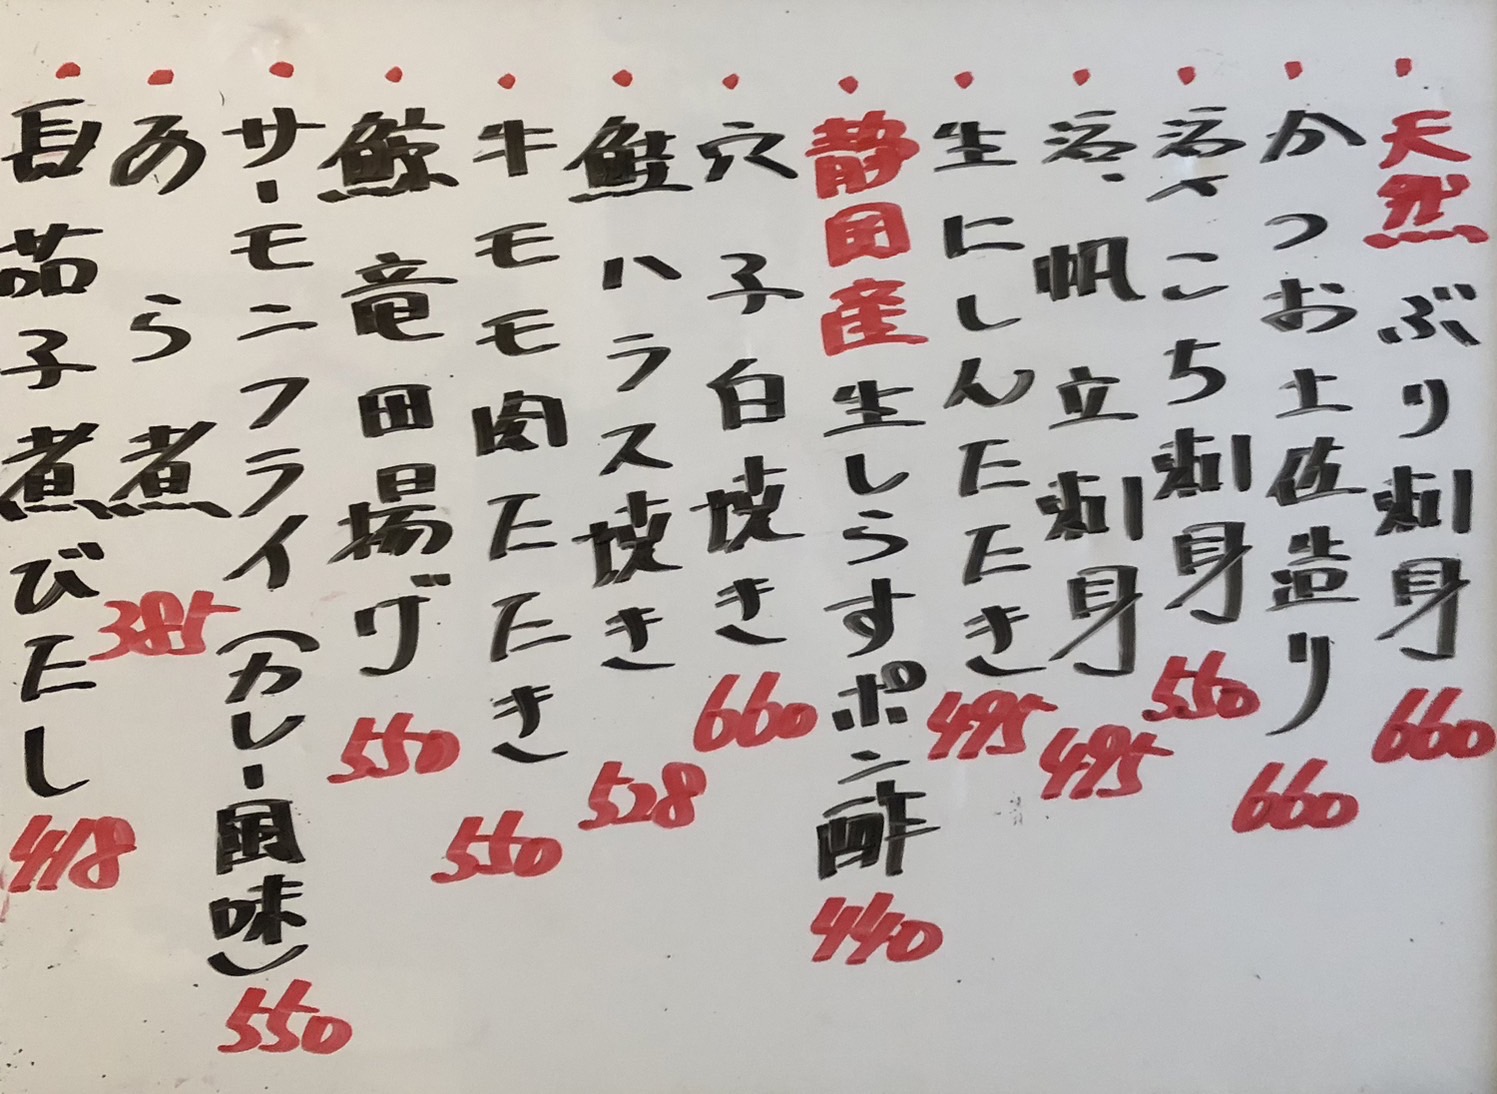 ・天然ぶり刺身 660
・かつお土佐造り 660
・活〆こち刺身 550
・活帆立刺身 495
・生にしんたたき 495
・静岡産生しらすポン酢 440
・穴子白焼き 660
・鮭ハラス焼き 528
・牛モモ肉たたき 550
・鯨竜田揚げ 550
・サーモンフライ(カレー風味) 550
・あら煮 385
・長茄子煮びたし 418